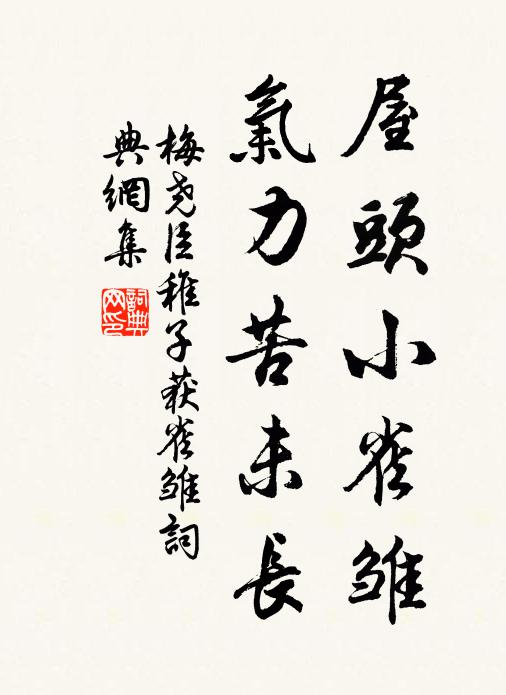 屋頭小雀雛
氣力苦未長
梅尧臣稚子获雀雏詞
典網集
詞典网印